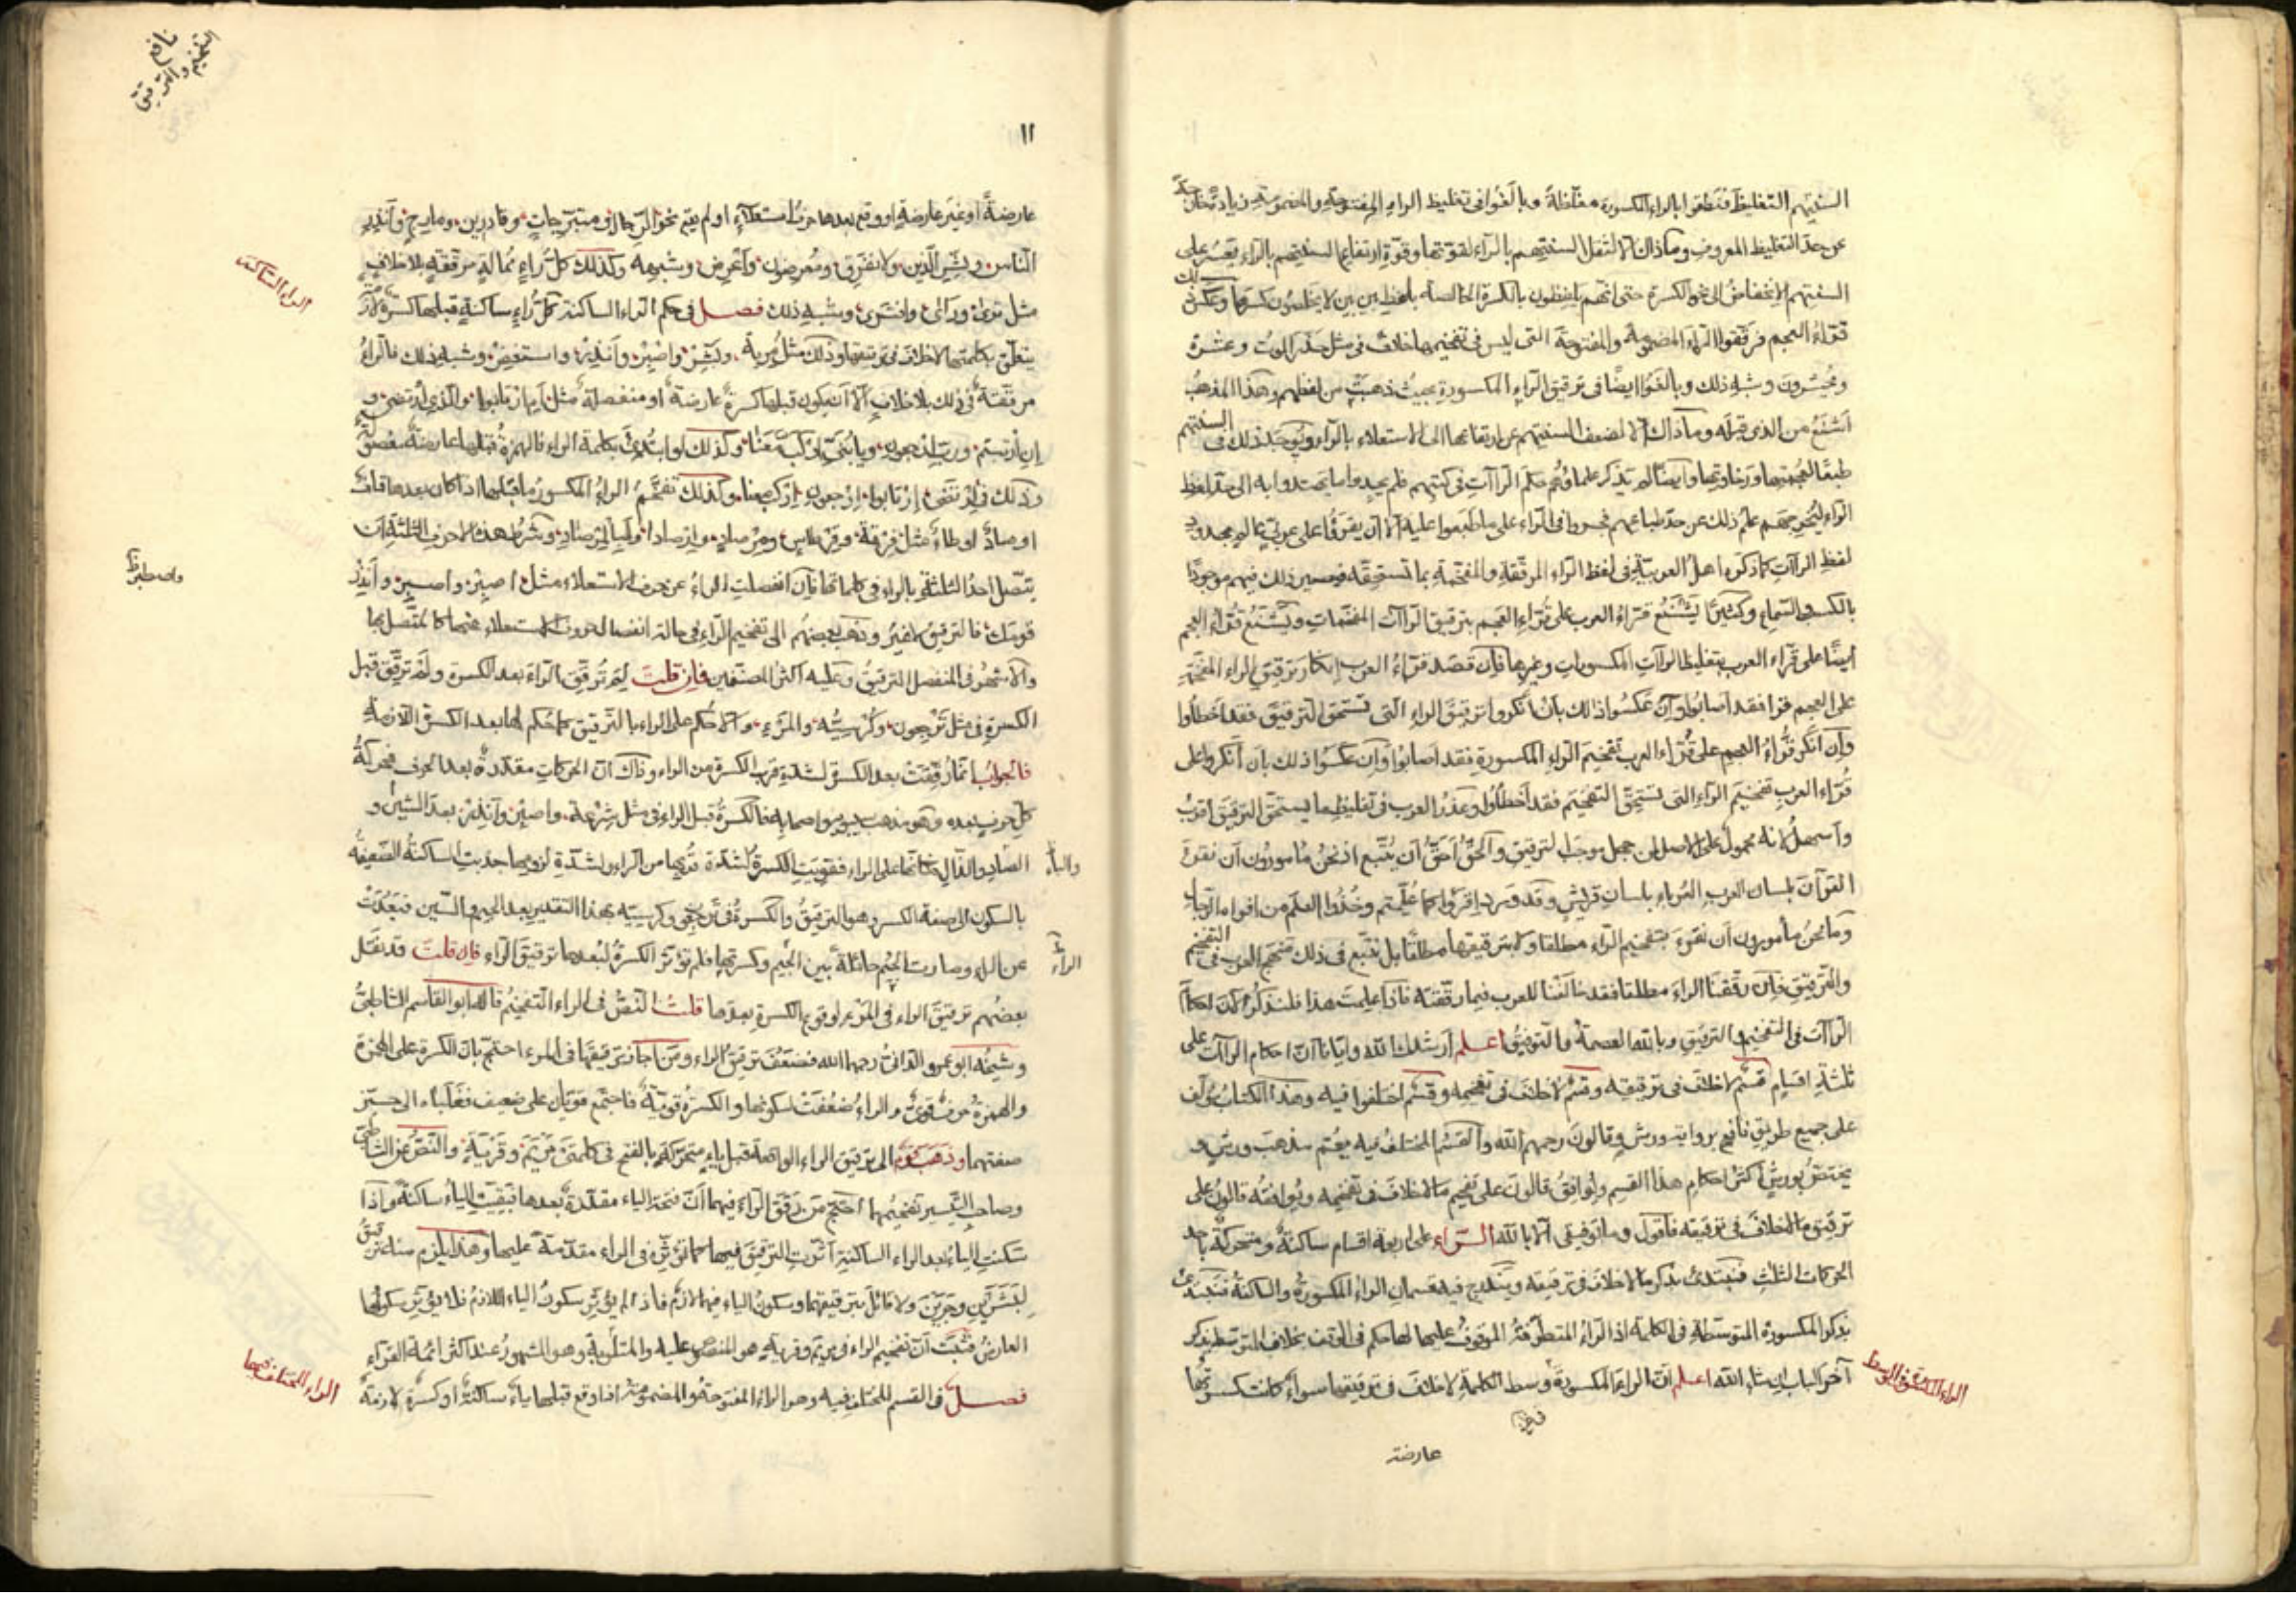 السنتهم التغليظ فنطقوا بالراء المكسورة مغلظة وبالغوا في تغليظ الراء المفتوحة والمضمومة زيادة تخل
عن حد التغليظ المعروف وما ذاك الا لثقل السنتهم بالراء لقوتها وقوة ارتفاع السنتهم بالراء يعسر على
السنتهم الانخفاض الى نحو الكسرة حتى انهم يلفظون بالكسرة الخالصة بلفظ بين بين لا يخلصون كسرها وعكس
قراء العجم فرققوا الراء المضمومة والمفتوحة التي ليس في تفخيمها خلاف في مثل حذر الموت وعشرة
ويخسرون وشبه ذلك وبالغوا ايضا في ترقيق الراء المكسورة بحيث ذهبت من لفظهم وهذا المذهب
اشنع من الذي قبله وما ذاك الا لضعف السنتهم عن ارتفاعها الى الاستعلاء بالراء ويوجد ذلك في السنتهم
طبعا لعجمتها ورخاوتها وايضا لم يذكر علماؤهم حكم الراآت في كتبهم فلم يجدوا ما يهتدوا به الى
الراء ليخرجهم علم ذلك عن حد طباعهم فجروا في الراء على ما طبعوا عليه الا ان يقرؤا على عربي عالم
لفظ الراآت كما ذكره اهل العربية في لفظ الراء المرققة والمفخمة بما تستحقه فيصير ذلك فيهم موجودا
بالكسب والسماع وكثيرا يشنع قراء العرب على قراء العجم بترقيق الراآت المفخمات ويشنع قراء العجم
ايضا على قراء العرب بتغليظ الراآت المكسورات وغيرها فان قصد قراء العرب انكار ترقيق الراء المفخمة
على العجم فقد اصابوا وان عكسوا ذلك بان انكروا ترقيق الراء التي تستحق الترقيق فقد اخطاوا
وان انكر قراء العجم على قراء العرب تفخيم الراء المكسورة فقد اصابوا وان عكسوا ذلك بان انكروا على
قراء العرب تفخيم الراء التي تستحق التفخيم فقد اخطاوا وعذر العرب في تغليظ ما يستحق الترقيق اقرب
واسهل لانه محمول على الاصل لمن جهل موجب الترقيق والحق احق ان يتبع اذ نحن مامورون ان نقرء
القرآن بلسان العرب العرباء بلسان قريش وقد ورد اقرؤا كما علمتم وخذوا العلم من افواه الرجال
وما نحن مأمورون ان نقرء بتفخيم الراء مطلقا ولا بترقيقها مطلقا بل نتبع في ذلك نهج العرب في التفخيم
والترقيق فان رققنا الراء مطلقا فقد خالفنا للعرب فيما رققته فاذا علمت هذا فلنذكر لك احكام
الراآت في التفخيم والترقيق وبالله العصمة والتوفيق اعلم ارشدك الله وايانا ان احكام الراآت على
ثلثة اقسام قسم لا خلاف في ترقيقه وقسم لا خلاف في تفخيمه وقسم اختلفوا فيه وهذا الكتاب مؤلف
على جميع طريق نافع برواية ورش وقالون رحمهم الله والقسم المختلف فيه يعم مذهب ورش و
يختص بورش اكثر احكام هذا القسم ويوافق قالون على تفخيم ما لا خلاف في تفخيمه ويوافقه قالون على
ترقيق ما لا خلاف في ترقيقه فاقول وما توفيقي الا بالله الراء على اربعة اقسام ساكنة ومتحركة باحد
الحركات الثلث فنبتدئ بذكر ما لا خلاف في ترقيقه ويندرج فيه قسمان الراء المكسورة والساكنة فنبتدئ
بذكر المكسورة المتوسطة في الكلمة اذ الراء المتطرفة الموقوف عليها لها حكم في الوقف بخلاف المتوسطة يذكر
آخر الباب ان شاء الله اعلم ان الراء المكسورة وسط الكلمة لا خلاف في ترقيقها سواء كانت كسرتها
الراء المكسورة في الوسط
عارضة
نافع
التفخيم والترقيق
١١
عارضة او غير عارضة او وقع بعدها حرف استعلاء او لم يقع نحو الرجال ومتبرجات وقادرين ومارج وانذر
الناس وبشر الذين ولا نفرق ومعرضون واعرض وشبهه وكذلك كل راء ممالة مرققة بلا خلاف
مثل ترى وراى واشترى وشبه ذلك فصل في حكم الراء الساكنة كل راء ساكنة قبلها كسرة لازمة
يتعلق بكلمتها لا خلاف في ترقيقها وذلك مثل مرية وبشر واصبر وانذر واستغفر وشبه ذلك فالراء
مرققة في ذلك بلا خلاف الا ان يكون قبلها كسرة عارضة او منفصلة مثل ام ارتابوا والذي ارتضى و
ان ارتبتم ورب ارجعون ويا بني اركب معنا وكذلك لو ابتدئ بكلمة الراء فالهمزة قبلها عارضة
وذلك في ارتضى ارتابوا ارجعون اركب معنا وكذلك تفخم الراء المكسور ما قبلها اذا كان بعدها قاف
او صاد او طاء مثل فرقة وقرطاس ومرصاد وارصادا ولبالمرصاد وشرط هذه الاحرف الثلثة ان
يتصل احد الثلثة بالراء في كلماتها فان انفصلت الراء عن حرف الاستعلاء مثل اصبر واصبر وانذر
قومك فالترقيق لا غير وذهب بعضهم الى تفخيم الراء في حالة انفصال حروف الاستعلاء عنها كالمتصل بها
والاشهر في المنفصل الترقيق وعليه اكثر المصنفين فان قلت لم ترقق الراء بعد الكسرة ولم ترقق قبل
الكسرة في مثل ترجعون وكرسيه والمرء والا حكم على الراء بالترقيق كما حكم لها بعد الكسرة اللازمة
فالجواب انما رققت بعد الكسرة لشدة قرب الكسرة من الراء وذاك ان الحركات مقدرة بعد الحرف فحركة
كل حرف بعده وهو مذهب سيبويه واصحابه فالكسرة قبل الراء في مثل شرعة واصبر وانذر بعد الشين و
الصاد والذال فكانها على الراء فقويت الكسرة لشدة قربها من الراء ولشدة لزومها جذبت الساكنة الضعيفة
والباء
بالسكون الى صفة الكسر وهو الترقيق والكسرة في ترجعي وكرسيه بهذا التقدير بعد الجيم والسين فبعدت
عن الراء وصارت الجيم حائلة بين الجيم وكسرتها فلم تؤثر الكسرة لبعدها ترقيق الراء فان قلت قد نقل
الراء
بعضهم ترقيق الراء في المرء لوقوع الكسرة بعدها قلت النص في الراء التفخيم قاله ابو القاسم الشاطبي
وشيخه ابو عمرو الداني رحمهما الله فضعف ترقيق الراء ومن اجاز ترقيقها في المرء احتج بان الكسرة على الهمزة
والهمزة حرف قوي والراء ضعفت لسكونها والكسرة قوية فاجتمع قويان على ضعيف فغلباه الى حيز
صفتهما وذهب قوم الى ترقيق الراء الواقعة قبل ياء متحركة بالفتح في كلمتي مريم وقرية والنص عن الشاطبي
وصاحب التيسير تفخيمهما احتج من رقق الراء فيهما ان فتحة الياء مقدرة بعدها فبقيت الياء ساكنة واذا
سكنت الياء بعد الراء الساكنة اثرت الترقيق فيها كما تؤثره في الراء مقدمة عليها وهذا يلزم منه ترقيق
لبشرين وجرين ولا قائل بترقيقهما وسكون الياء فيهما لازم فاذا لم يؤثر سكون الياء اللازم فلا يؤثر سكونها
العارض فثبت ان تفخيم الراء في مريم وقرية هو المنصوص عليه والمتلو به وهو المشهور عند اكثر ائمة القراء
فصل في القسم المختلف فيه وهو الراء المفتوحة والمضمومة اذا وقع قبلها ياء ساكنة او كسرة لازمة
الراء الساكنة
الراء المختلف فيها